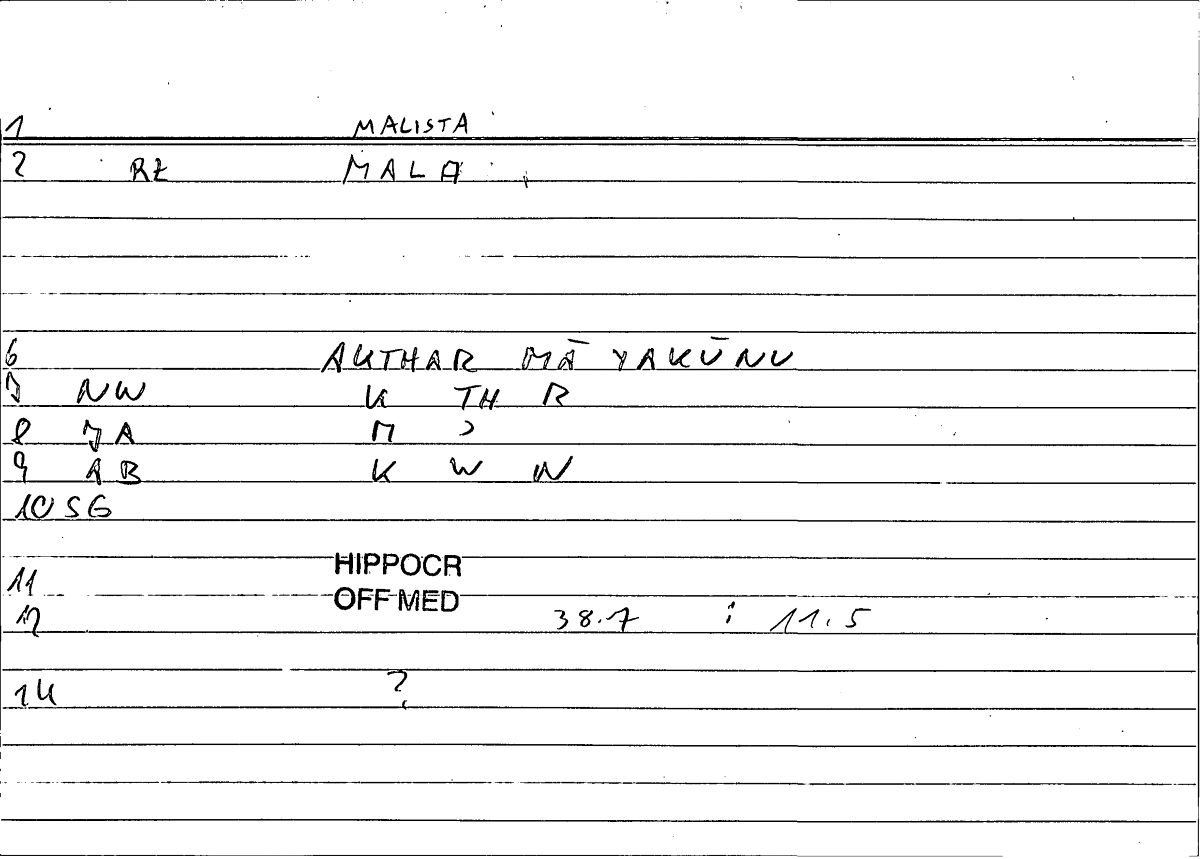 1 MALISTA
2 RŁ MALA
6 AKTHAR MĀ YAKŪNU
7 NW K TH R
8 JA M ʾ
9 AB K W N
10 SG
11 HIPPOCR
12 OFF MED 38.7 : 11.5
14 ?